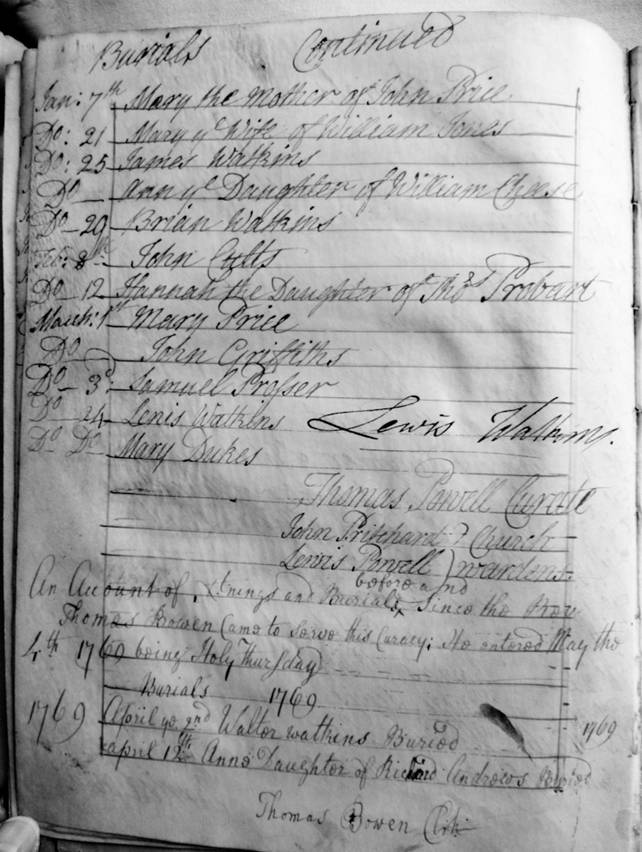 Burials Continued
Jan: 7th Mary the Mother of John Price
Do: 21 Mary ye Wife of William Jones
Do: 25 James Watkins
Do Ann ye Daughter of William Cheese
Do 29 Brian Watkins
Feb: 8th John Cutts
Do 12 Hannah the Daughter of Thos Probart
March: 1st Mary Price
Do John Griffiths
Do 3d Samuel Prosser
Do 14 Lewis Watkins Lewis Watkins.
Do Do Mary Dukes
Thomas Powell Curate
John Pritchard } Church
Lewis Powell } wardens
before and
An Account of and Burials, Since the Rev
Thomas Bowen Came to Serve this Curacy: He entered May the
4th 1769 being Holy Thursday
Burials 1769
1769 April ye 2nd Walter watkins Buried 1769
April 12th Anne Daughter of Richard Andrews Buried
Thomas Bowen Clk: